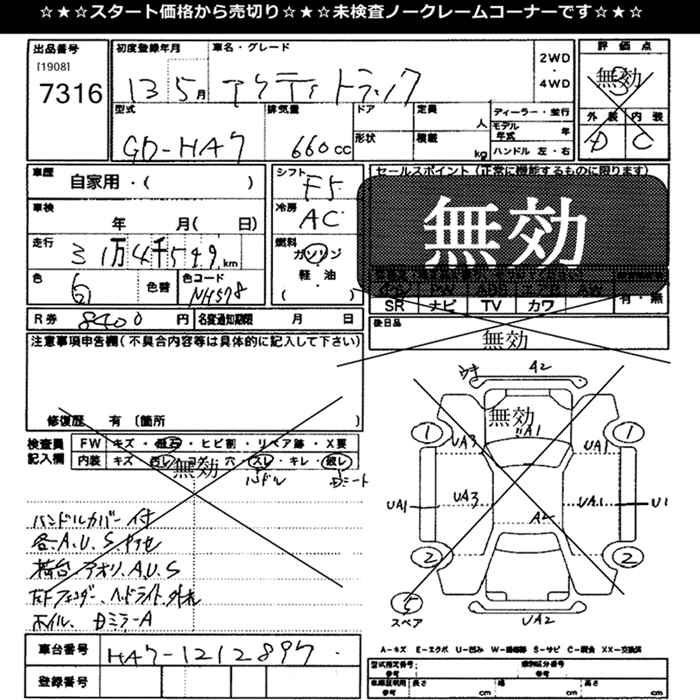 ☆★☆★スタート価格から売切り☆★☆★未検査ノークレームコーナーです☆★☆
出品番号 初度登録年月 車名・グレード 2WD ・ 4WD 評価点
[1908]
7316 13 5月 アクティ トラック 無効
型式 排気量 ドア 定員 人 ディーラー・並行 外装 内装
GD-HA7 660cc 形状 積載 kg モデル年式 年 D C
ハンドル 左・右
車歴 自家用・( ) シフト F5 セールスポイント (正常に機能するものに限ります)
無効
車検 年 月( 日) 冷房 AC
走行 3 1万4千549km 燃料 ガソリン
軽・油
( )
色 白 色替 色コード NH578
SR ナビ TV カワ 有・無
R券 8400 円 名変通知期限 月 日 後日品
無効
注意事項申告欄 (不具合内容等は具体的に記入して下さい)
修復歴 有 〔箇所 〕
検査員記入欄 FW キズ・飛石・ヒビ割・リペア跡・X要
内装 キズ 汚レ コゲ 穴 スレ キレ 破レ
無効
ハンドル シート
ハンドルカバー付
各.A.U.S.サクセ
荷台アオリ.A.U.S
右Fフェンダー、ヘッドライト外れ
ホイル、ミラーA
A2
無効
1 UA3 UA1 1
UA1 UA3 UA1 U1
A2
2 2
スペア UA2
A-キズ E-エクボ U-凹み W-補修跡 S-サビ C-腐食 XX-交換済
車台番号 HA7-1212897
登録番号
型式指定番号 類別区分番号
参考 参考
車庫証明用 長さ 幅 高さ
参考 cm cm cm